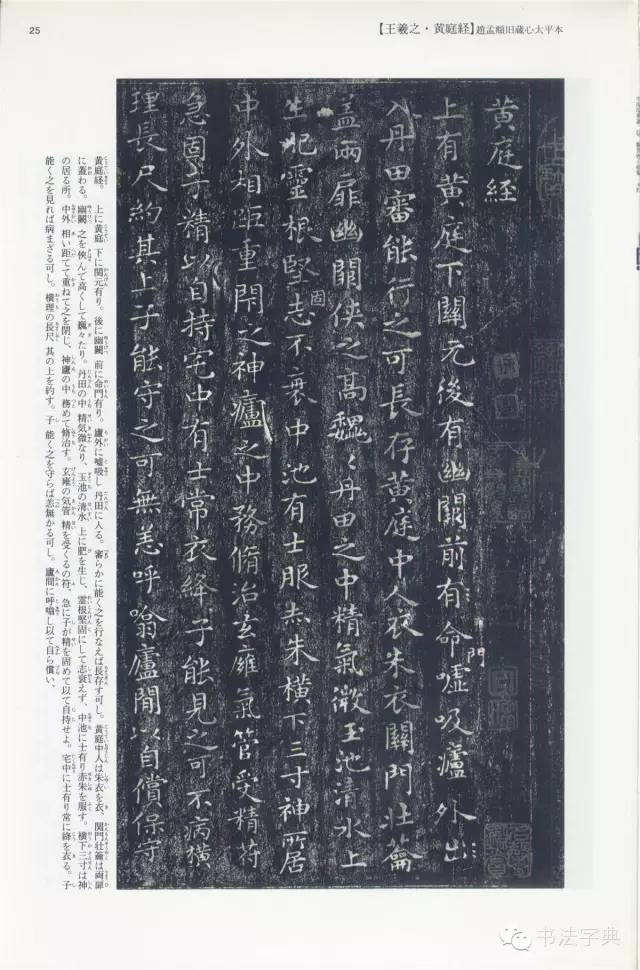 25
【王羲之・黄庭経】趙孟頫旧蔵心太平本
黄庭経
上有黄庭下關元後有幽闕前有命門噓吸廬外出
入丹田審能行之可長存黄庭中人衣朱衣關門壯籥
盖兩扉幽闕俠之髙魏〻丹田之中精氣微玉池清水上
生肥靈根堅固志不衰中池有士服赤朱横下三寸神所居
中外相距重閇之神廬之中務脩治玄廱氣管受精符
急固子精以自持宅中有士常衣絳子能見之可不病横
理長尺約其上子能守之可無恙呼噏廬間以自償保守
黄庭経。　上に黄庭 下に関元有り。後に幽闕 前に命門有り。廬外に噓吸し 丹田に入る。審らかに能く之を行なえば長存す可し。黄庭中人は朱衣を衣、関門壮籥は両扉
に蓋わる。幽闕 之を俠んで高くして巍々たり。丹田の中 精気微なり、玉池の清水 上に肥を生じ、霊根堅固にして志衰えず、中池に士有り赤朱を服す。横下三寸は神
の居る所。中外 相い距てて重ねて之を閉じ、神廬の中 務めて脩治す。玄雍の気管 精を受くるの符、急に子が精を固めて以て自持せよ。宅中に士有り常に絳を衣る。子
能く之を見れば病まざる可し。横理の長尺 其の上を約す。子 能く之を守らば恙無かる可し。廬間に呼噏し以て自ら償い、
书法字典